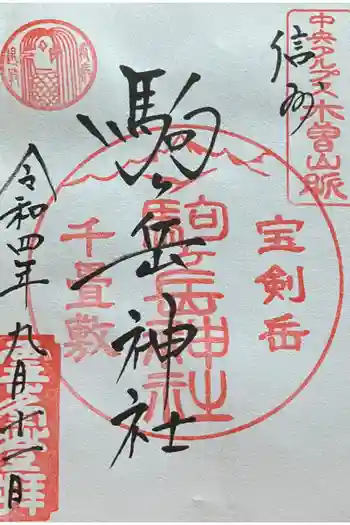 中央アルプス木曽山脈
信州
宝剣岳
駒ヶ岳神社
駒ヶ岳神社
千畳敷
令和四年九月十一日
登拝